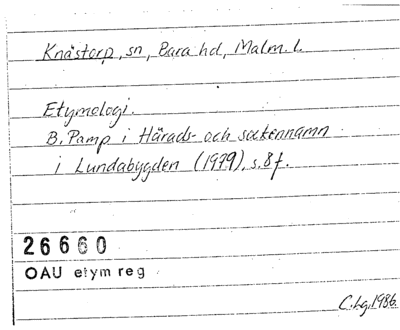 Knästorp, sn, Bara hd, Malm. l.
Etymologi.
B. Pamp i Härads- och sockennamn
i Lundabygden (1979), s. 8 f.
26660
OAU etym reg
C. Lg. 1986.